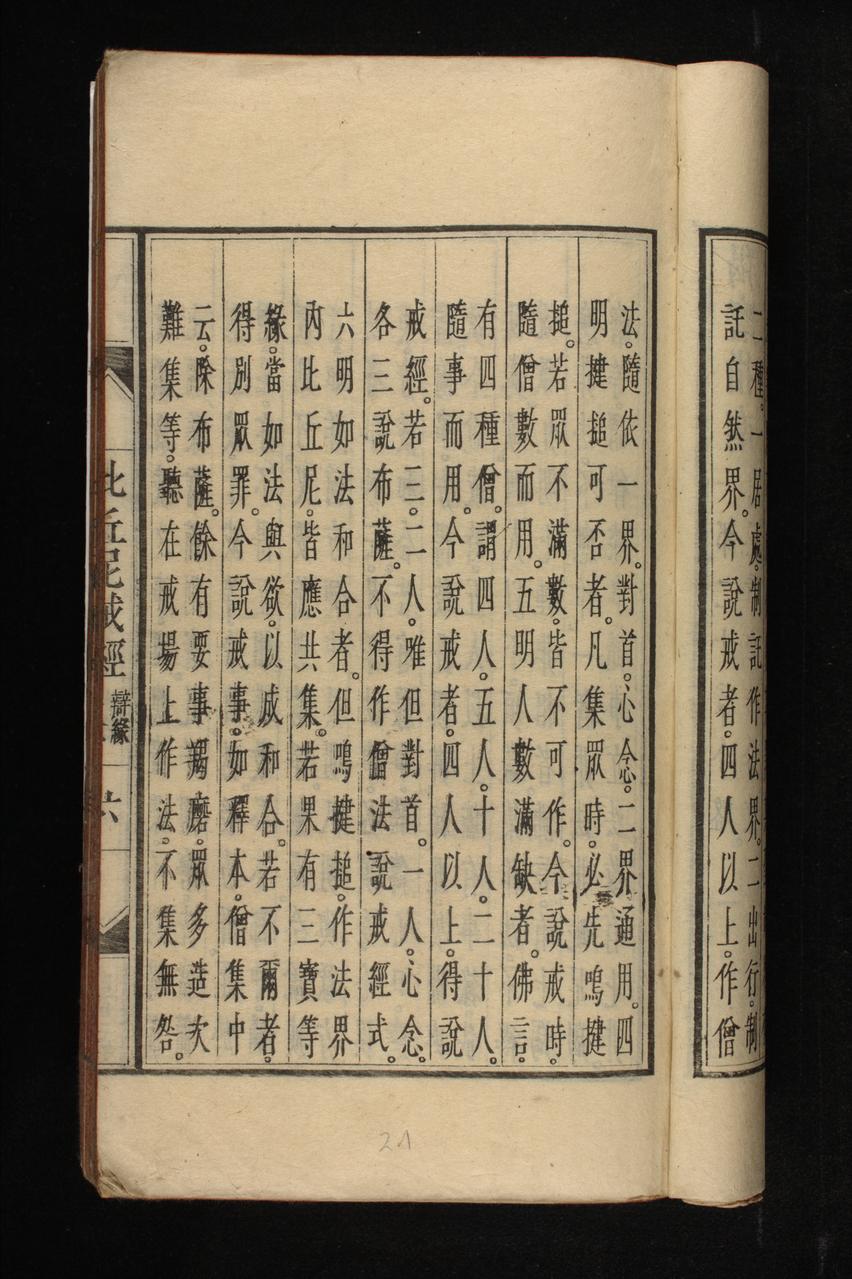 二種。一居處。制託作法界。二出行。制
託自然界。今說戒者。四人以上。作僧
法。隨依一界。對首。心念。二界通用。四
明揵搥可否者。凡集眾時。必先鳴揵
搥。若眾不滿數。皆不可作。今說戒時。
隨僧數而用。五明人數滿缺者。佛言。
有四種僧。謂四人。五人。十人。二十人。
隨事而用。今說戒者。四人以上。得說
戒經。若三。二人。唯但對首。一人。心念。
各三說布薩。不得作僧法說戒經式。
六明如法和合者。但鳴揵搥。作法界
內比丘尼。皆應共集。若果有三寶等
緣。當如法與欲。以成和合。若不爾者。
得別眾罪。今說戒事。如釋本。僧集中
云。除布薩。餘有要事羯磨。眾多造次
難集等。聽在戒場上作法。不集無咎。
比丘尼戒經
辯緣
六
21